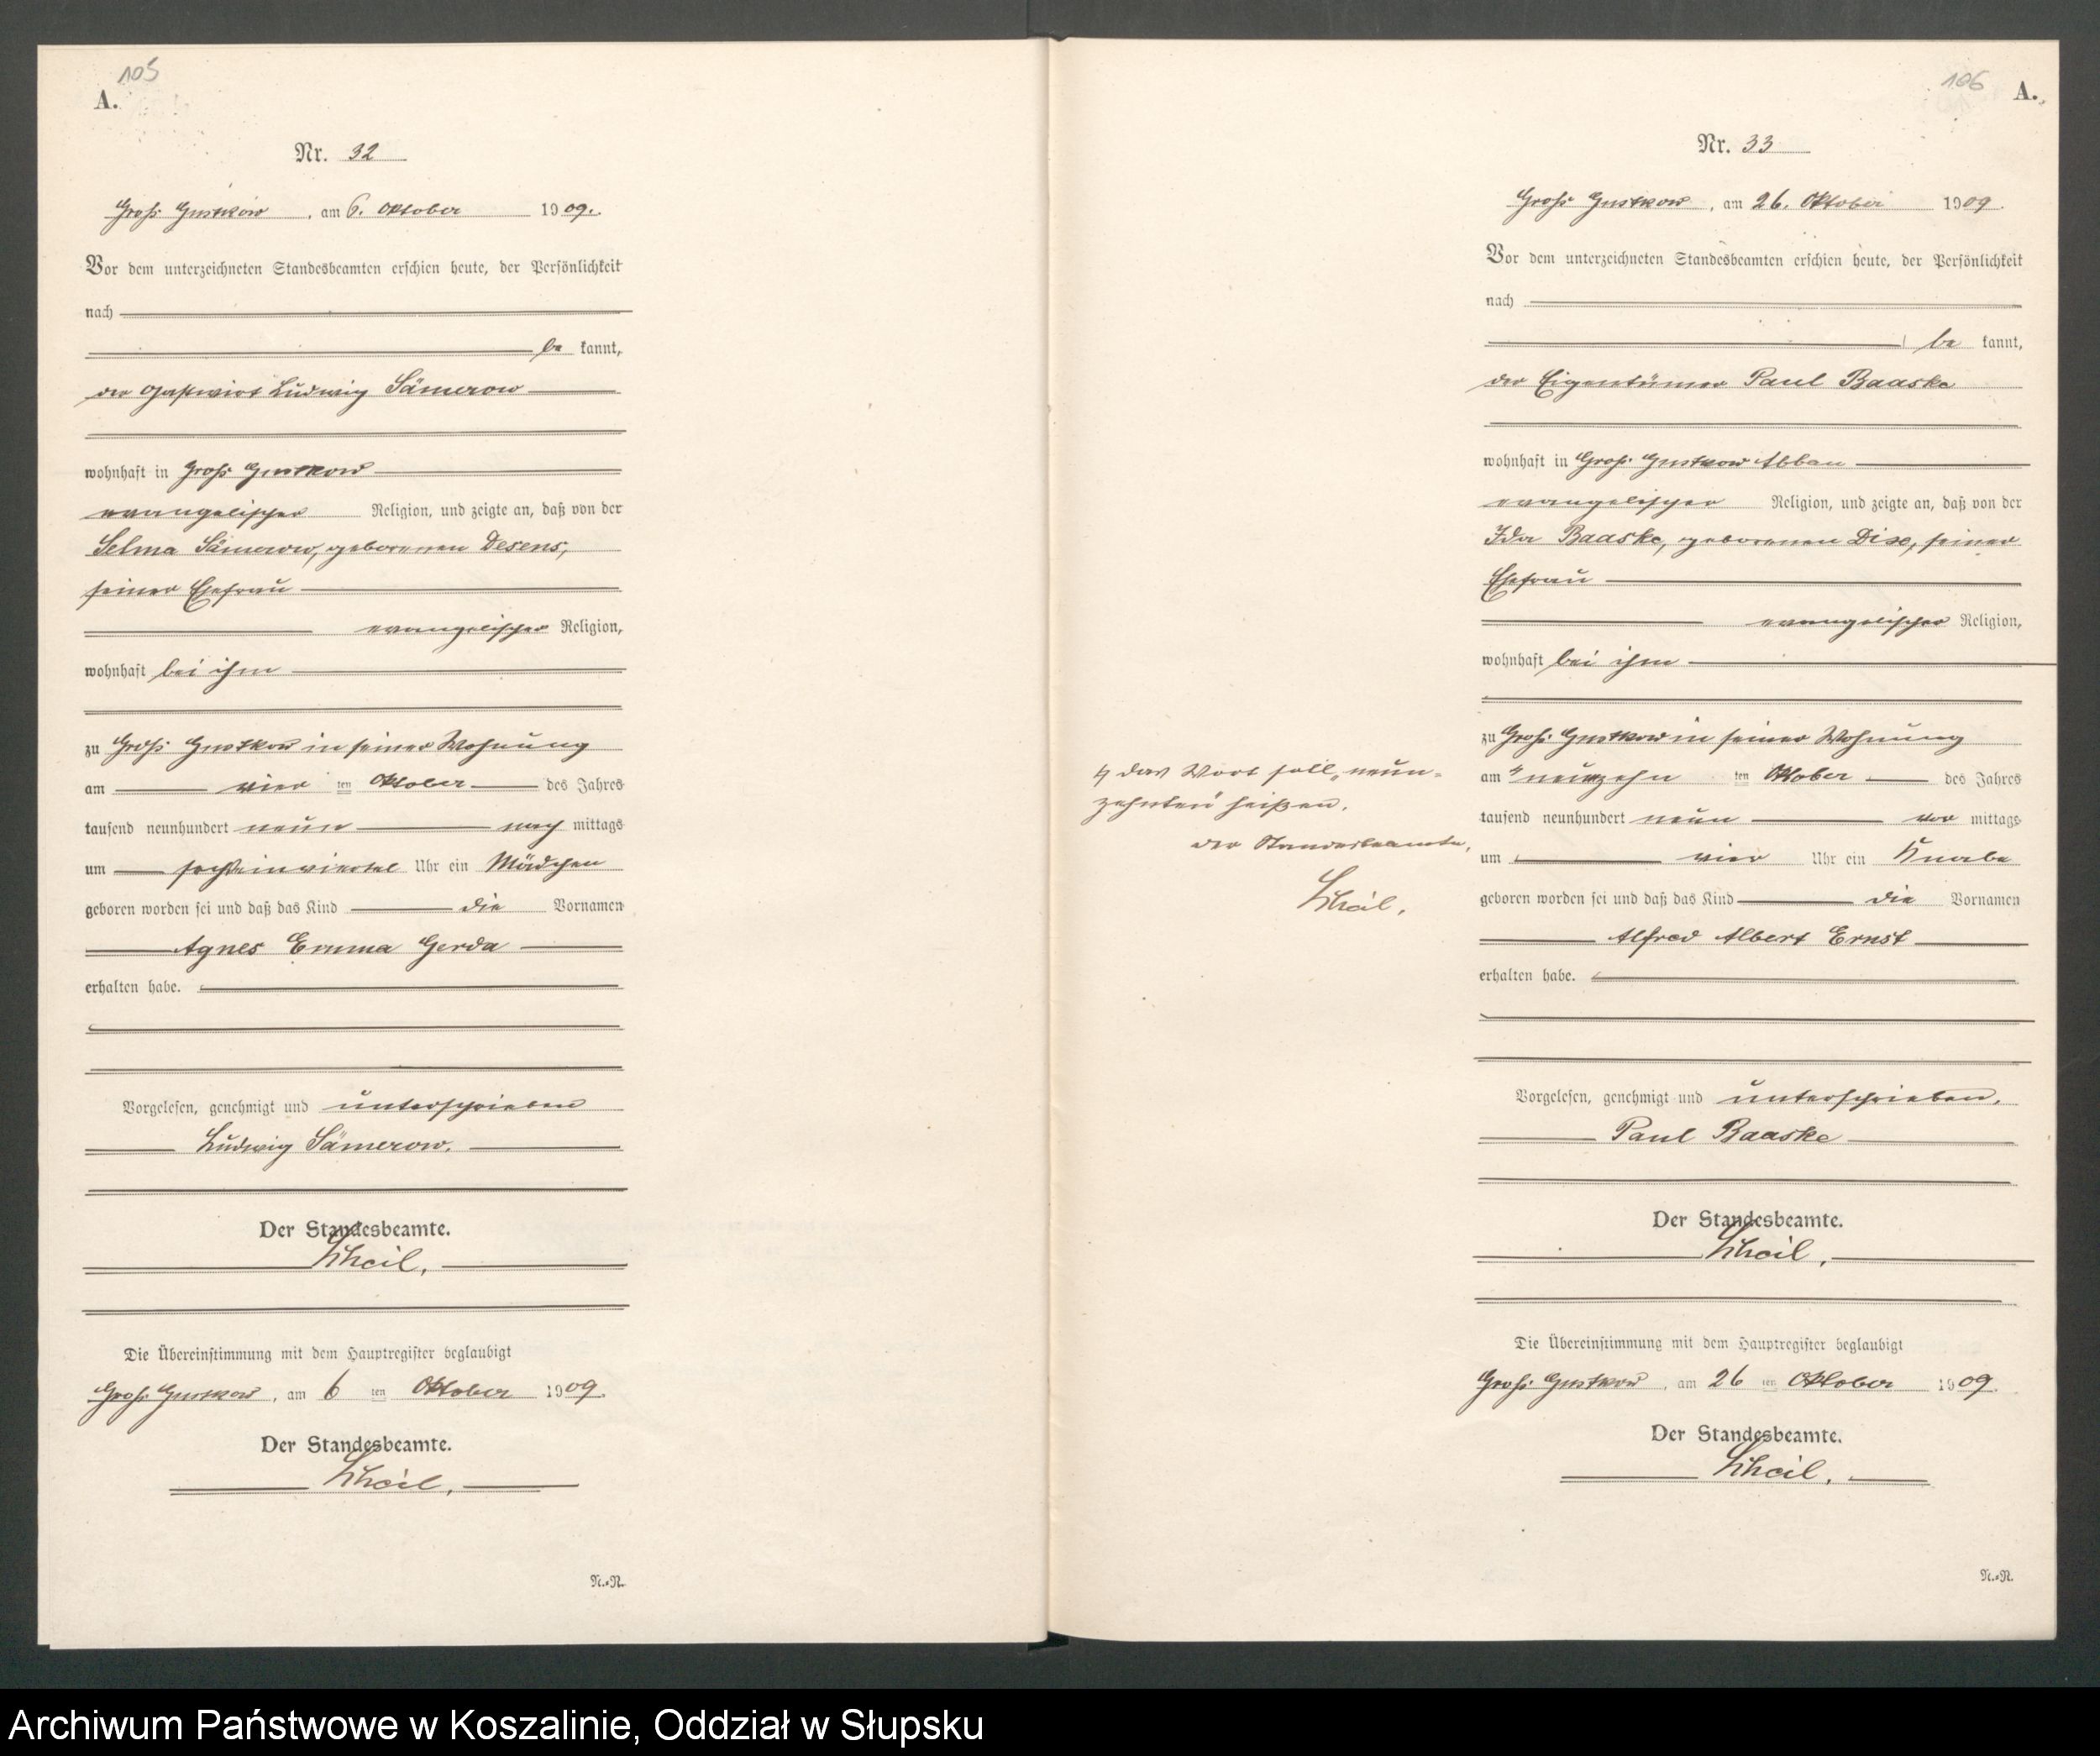 105
A.
Nr. 32
Groß Gustkow, am 6. Oktober 1909.
Vor dem unterzeichneten Standesbeamten erschien heute, der Persönlichkeit
nach
be kannt,
der Gastwirt Ludwig Sämerow
wohnhaft in Groß Gustkow
evangelischer Religion, und zeigte an, daß von der
Selma Sämerow, geborenen Desens,
seiner Ehefrau
evangelischer Religion,
wohnhaft bei ihm
zu Groß Gustkow in seiner Wohnung
am vier ten Oktober des Jahres
tausend neunhundert neun nach mittags
um sechseinviertel Uhr ein Mädchen
geboren worden sei und daß das Kind die Vornamen
Agnes Emma Gerda
erhalten habe.
Vorgelesen, genehmigt und unterschrieben
Ludwig Sämerow.
Der Standesbeamte.
Die Übereinstimmung mit dem Hauptregister beglaubigt
Groß Gustkow, am 6 ten Oktober 1909.
Der Standesbeamte.
N.-N.
106
A.
Nr. 33
Groß Gustkow, am 26. Oktober 1909.
Vor dem unterzeichneten Standesbeamten erschien heute, der Persönlichkeit
nach
be kannt,
der Eigentümer Paul Baaske
wohnhaft in Groß Gustkow Abbau
evangelischer Religion, und zeigte an, daß von der
Ida Baaske, geborenen Dixe, seiner
Ehefrau
evangelischer Religion,
wohnhaft bei ihm
zu Groß Gustkow in seiner Wohnung
am neunzehn ten Oktober des Jahres
tausend neunhundert neun vor mittags
um vier Uhr ein Knabe
geboren worden sei und daß das Kind die Vornamen
Alfred Albert Ernst
erhalten habe.
das Wort soll „neun-
zehnten" heißen.
der Standesbeamte,
Vorgelesen, genehmigt und unterschrieben.
Paul Baaske
Der Standesbeamte.
Die Übereinstimmung mit dem Hauptregister beglaubigt
Groß Gustkow, am 26 ten Oktober 1909.
Der Standesbeamte.
N.-N.
Archiwum Państwowe w Koszalinie, Oddział w Słupsku